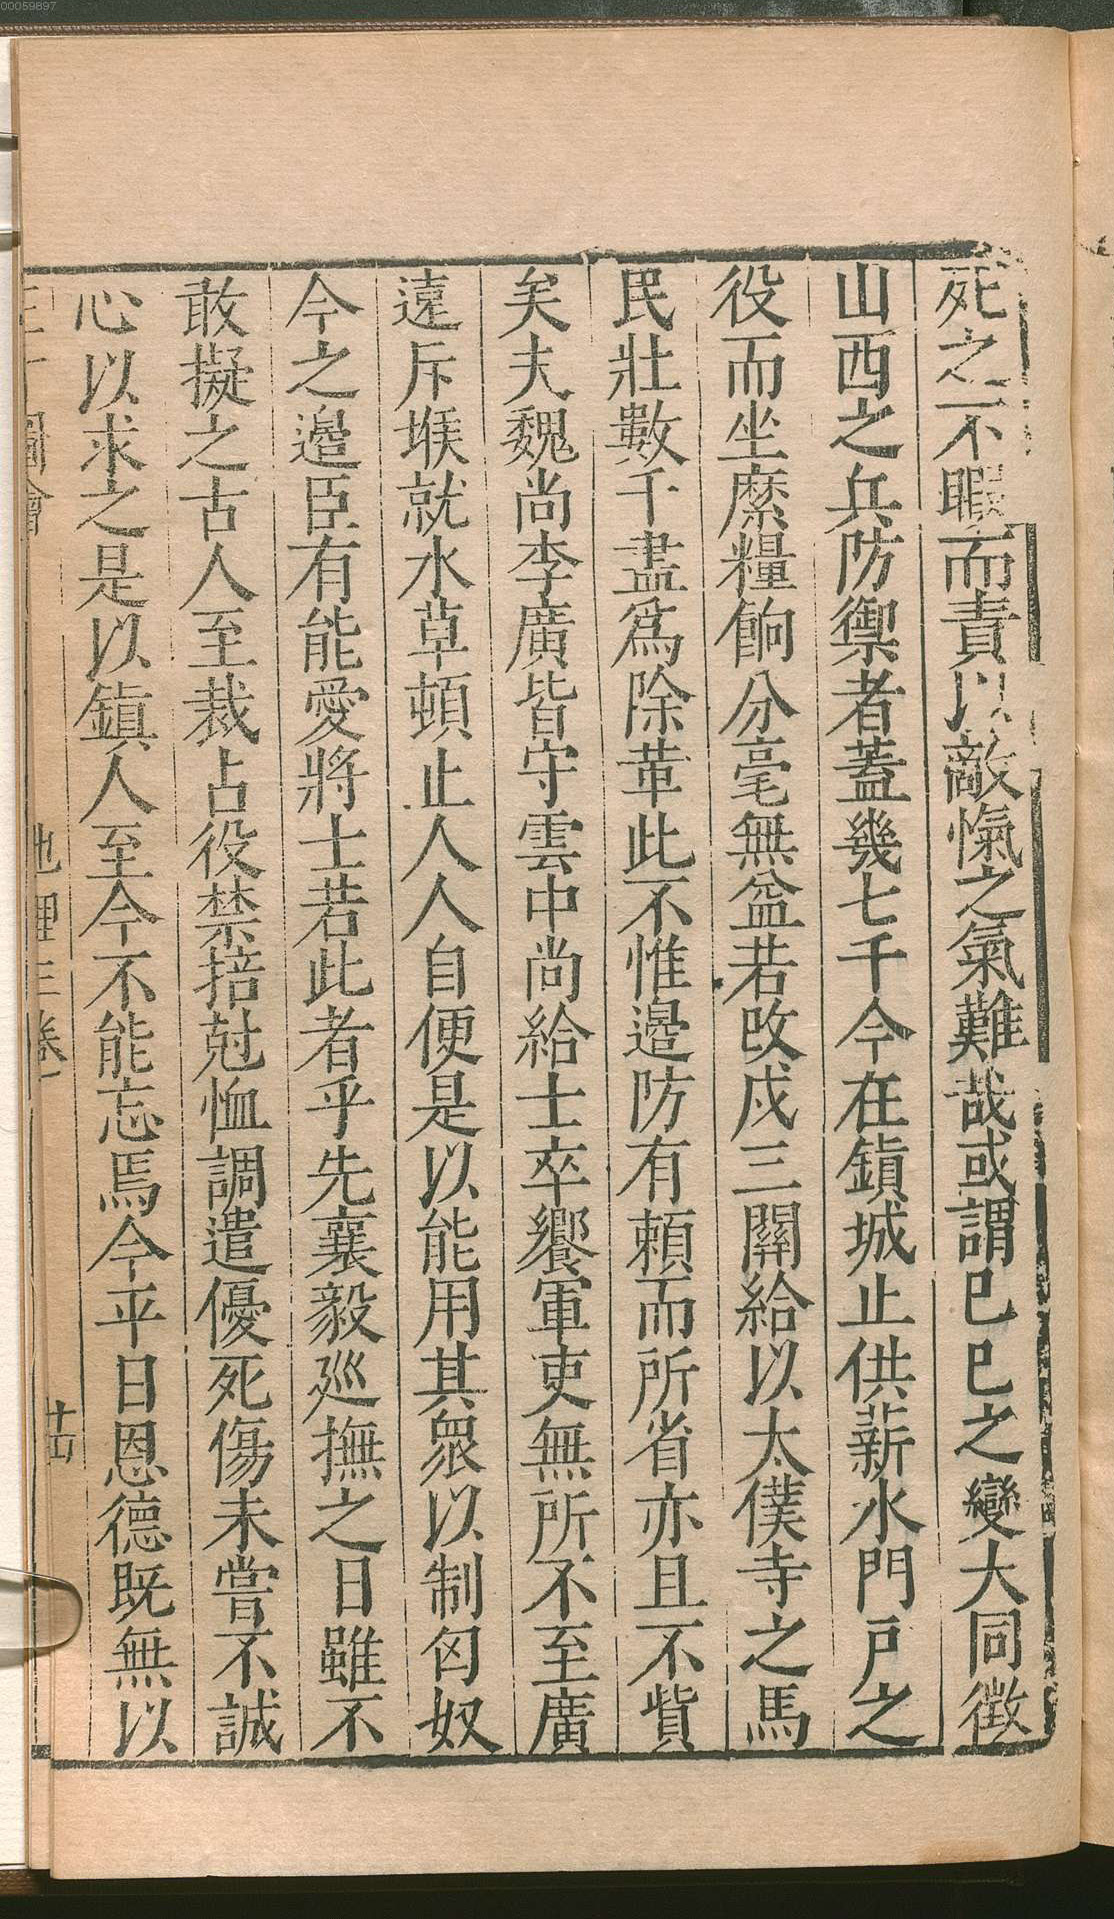 00059897
死之不暇而責以敵愾之氣難哉或謂巳巳之變大同徴
山西之兵防禦者蓋幾七千今在鎮城止供薪水門戶之
役而坐縻糧餉分毫無益若改戍三關給以太僕寺之馬
民壯數千盡爲除革此不惟邉防有頼而所省亦且不貲
矣夫魏尚李廣皆守雲中尚給士卒饗軍吏無所不至廣
遠斥堠就水草頓止人人自便是以能用其衆以制匈奴
今之邉臣有能愛將士若此者乎先襄毅廵撫之日雖不
敢擬之古人至裁占役禁掊尅恤調遣優死傷未嘗不誠
心以求之是以鎮人至今不能忘焉今平日恩德既無以
三才圖會 地理三卷 十四